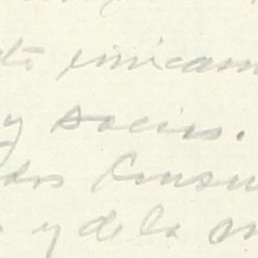 te unicam
y socios.
dos Consu
y de la